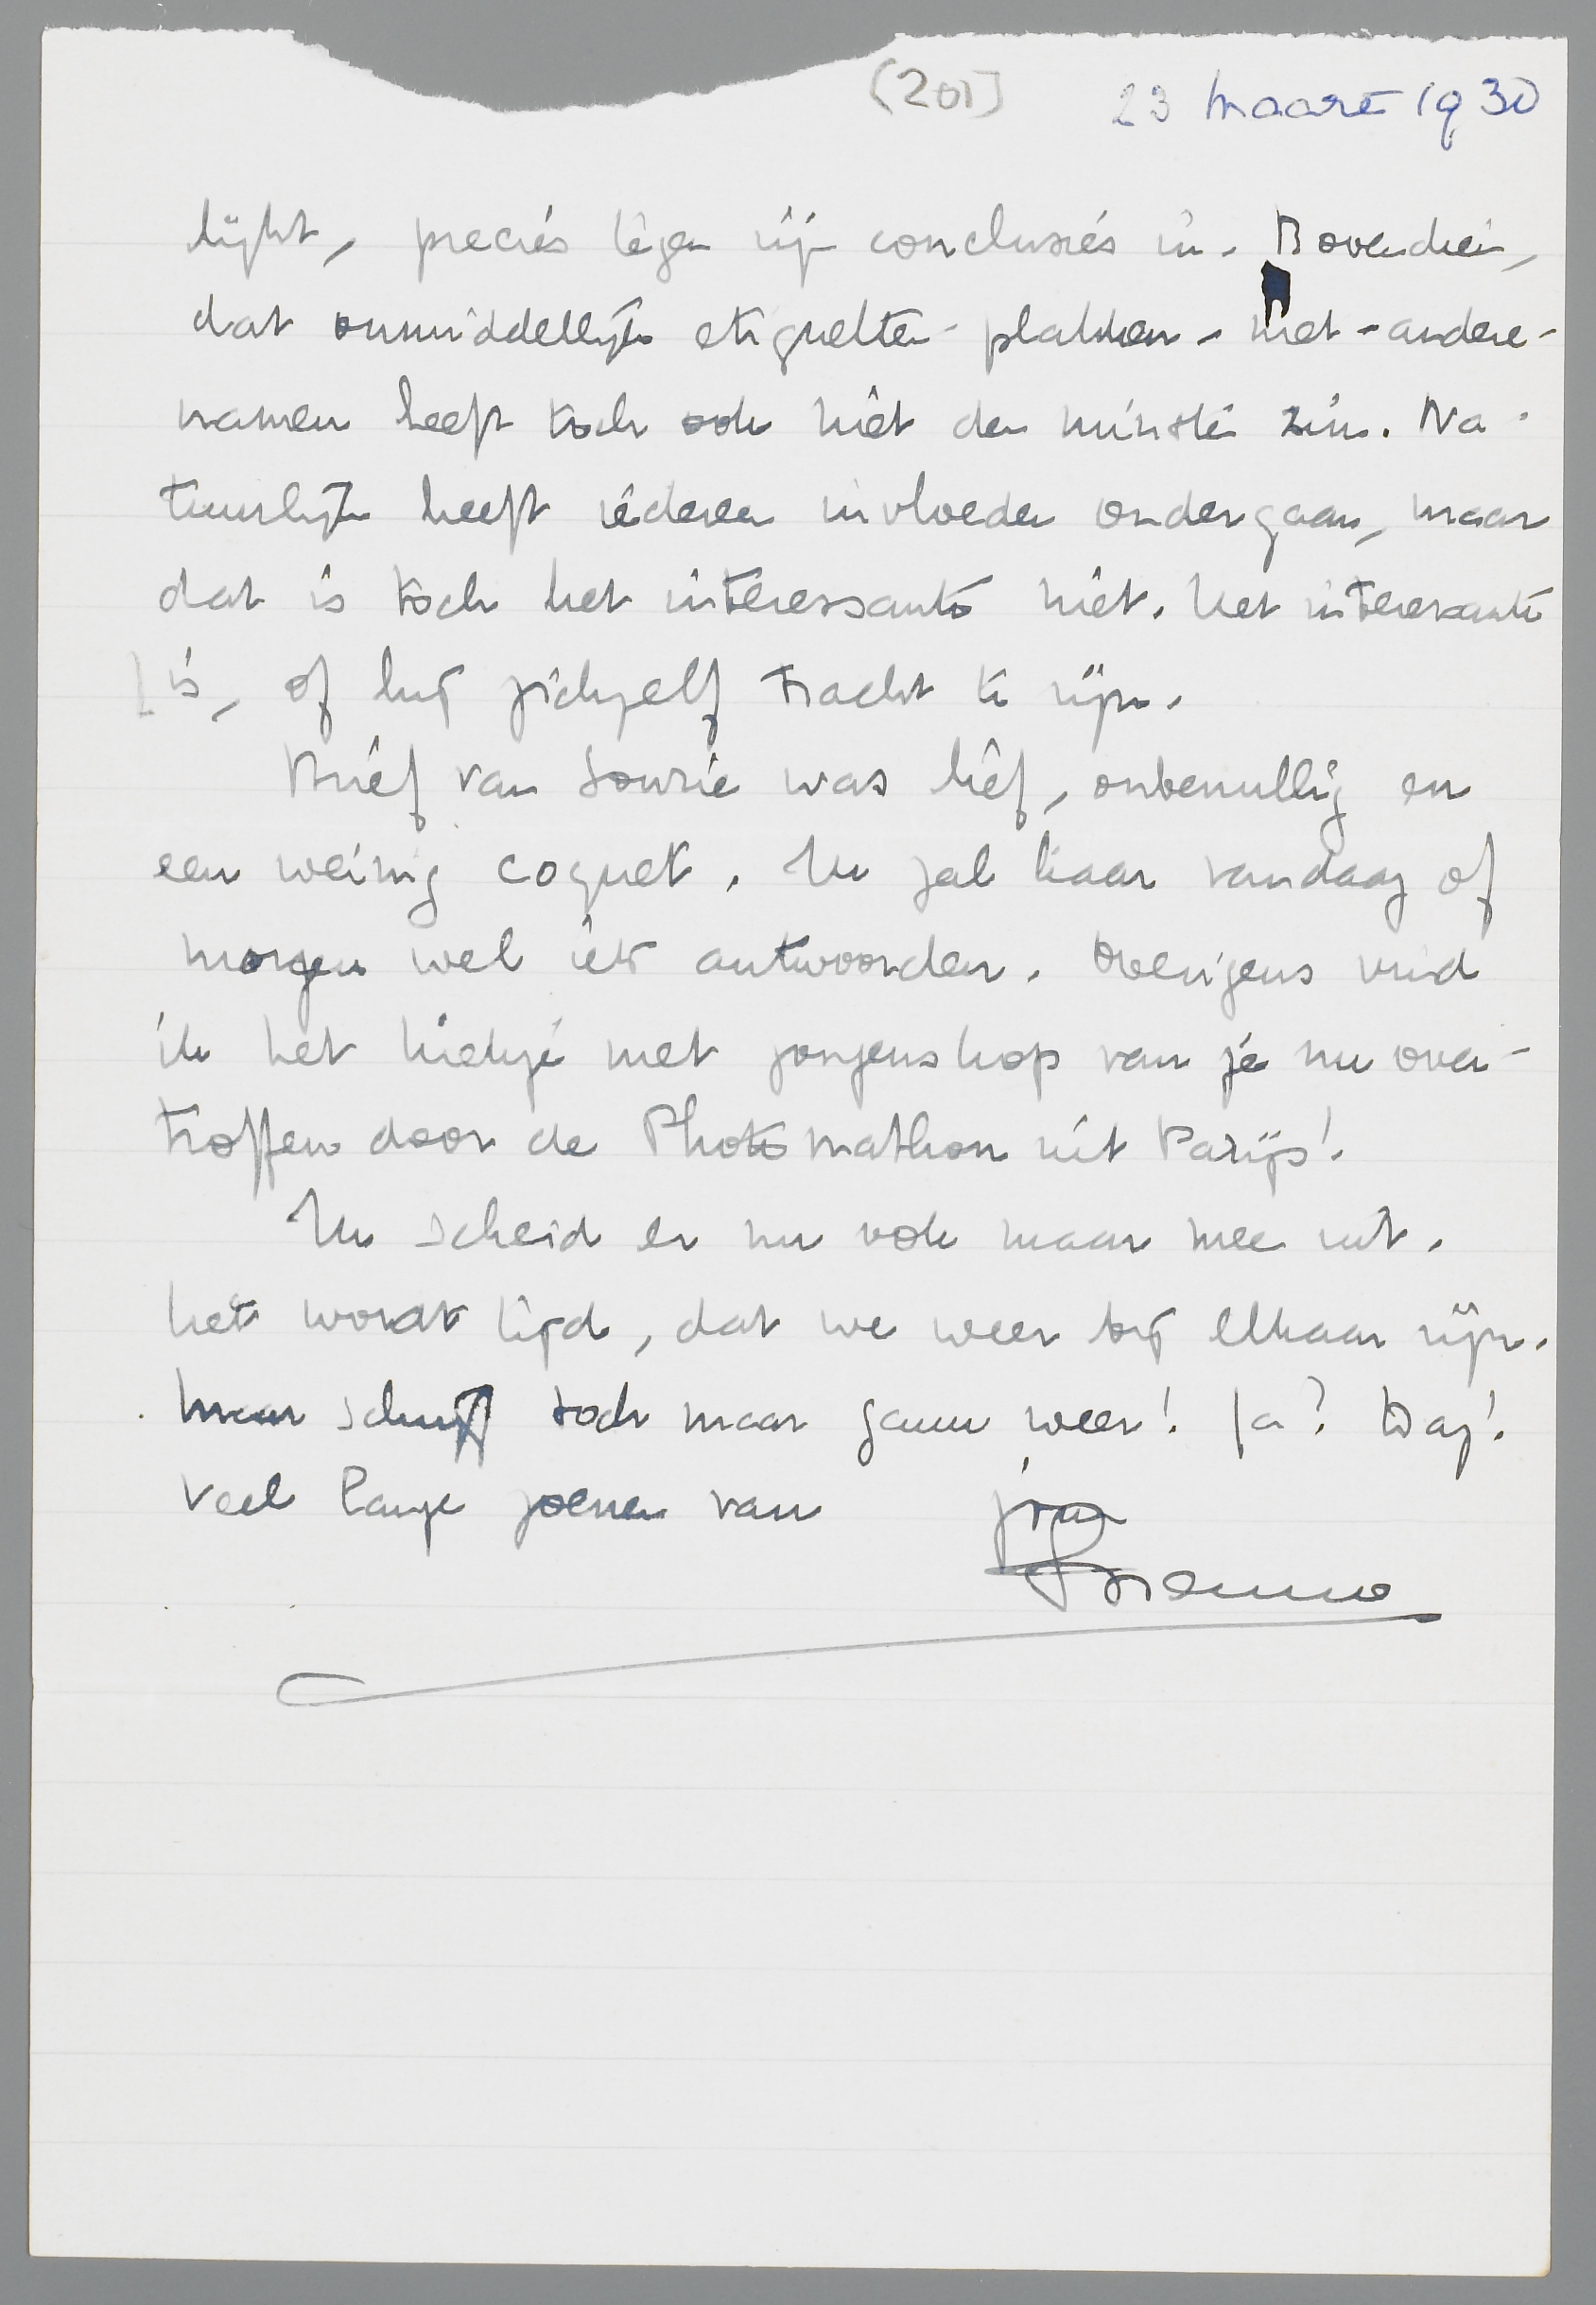 (201) 23 maart 1930
lijkt, precies tegen zijn conclusies in. Bovendien,
dat onmiddellijk etiquetten-plakken-met-andere-
namen heeft toch ook niet den minsten zin. Na-
tuurlijk heeft iedereen invloeden ondergaan, maar
dat is toch het interessante niet. Het interessante
is, of hij zichzelf tracht te zijn.
Brief van Sourie was lief, onbenullig en
een weinig coquet. Ik zal haar vandaag of
morgen wel iets antwoorden. Overigens vind
ik het kiekje met jongenskop van je nu over-
troffen door de Photomathon uit Parijs!
Ik scheid er nu ook maar mee uit.
het wordt tijd, dat we weer bij elkaar zijn.
Maar schrijf toch maar gauw weer! Ja? Dag!
Veel lange zoenen van je
Menno